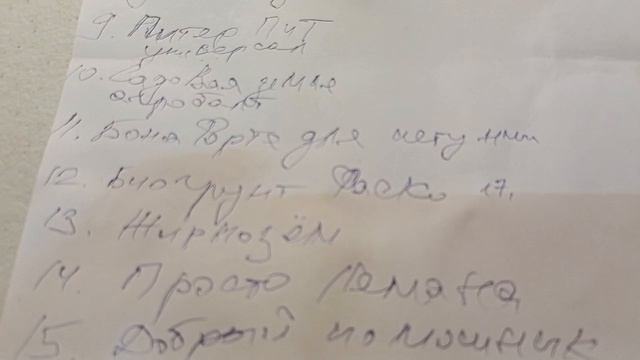 9. Питер Пит
универсал
10. Садовая земля
агробалт
11. Бона Форте для петунии
12. Биогрунт Фаско 17.
13. Жирнозём
14. Просто
15. Добрый помошник